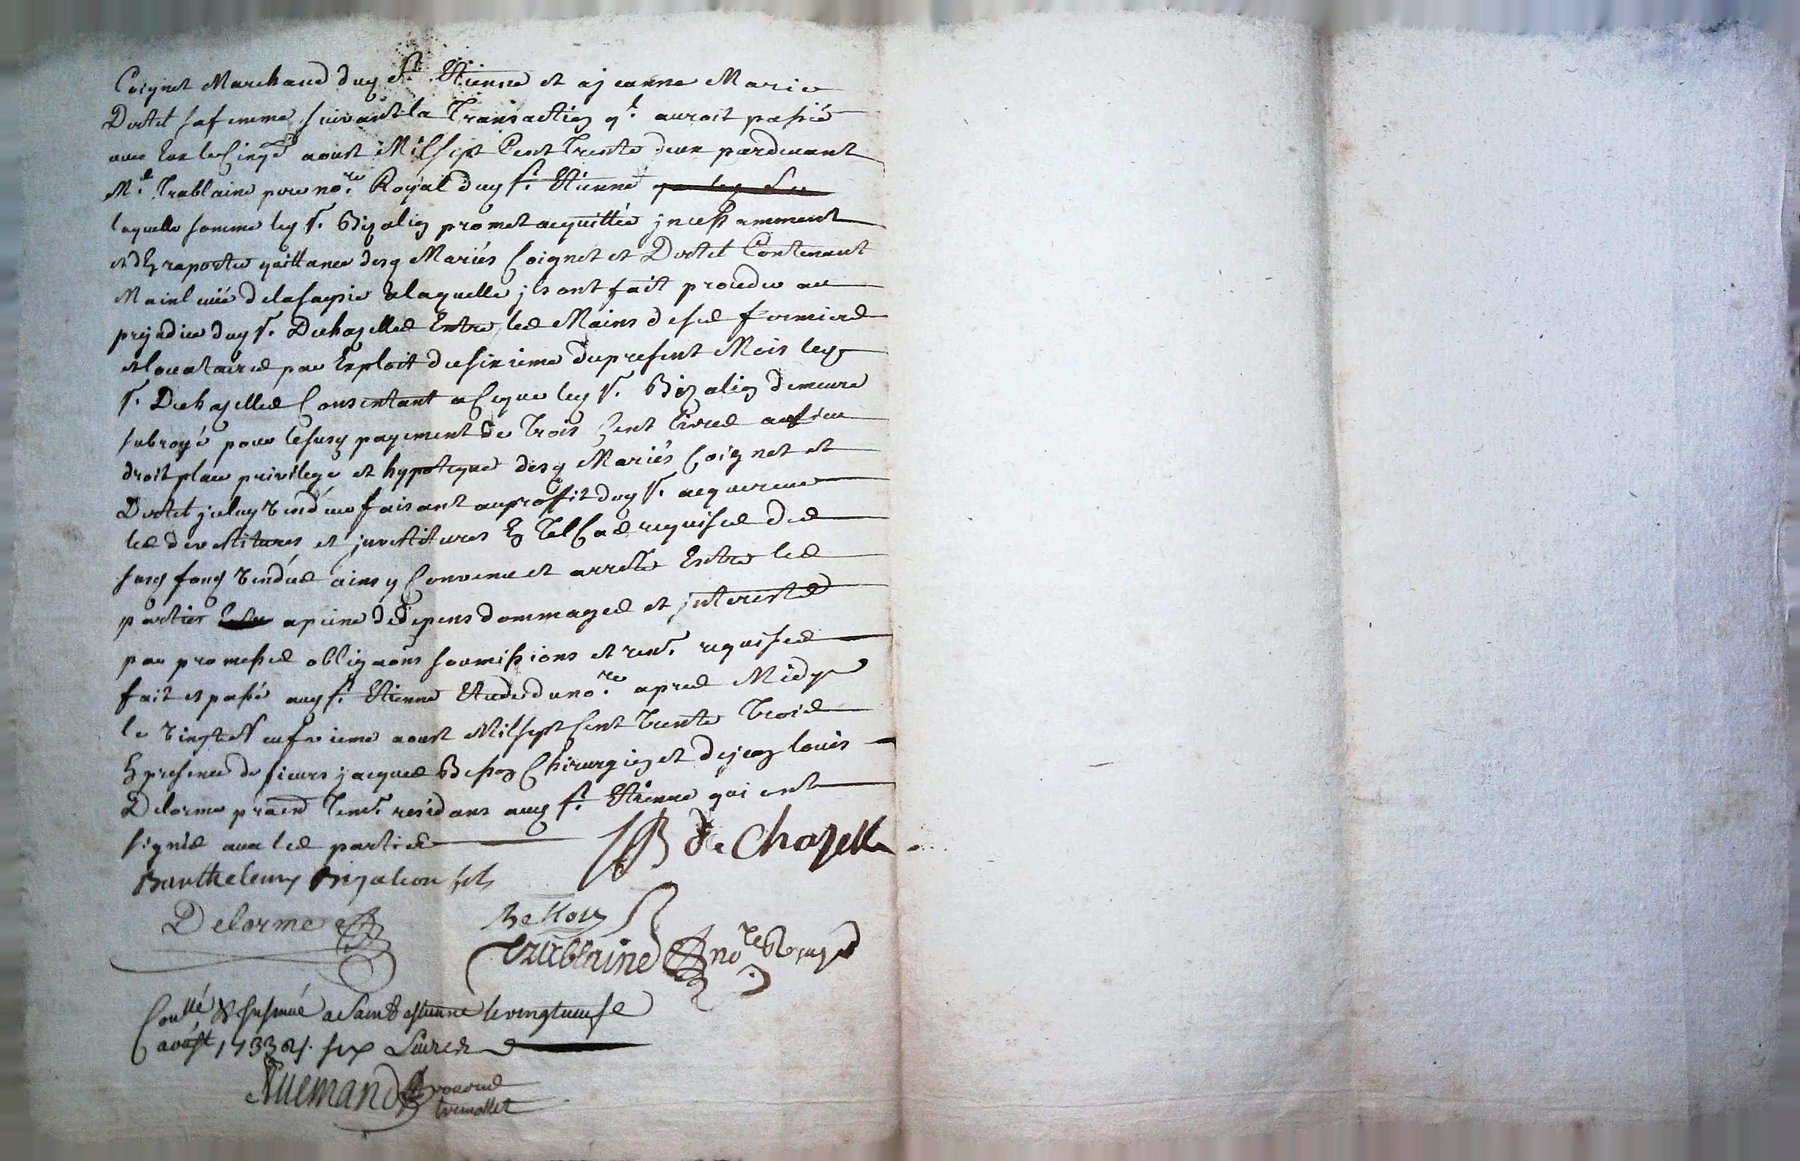 Coignet Marchand dud St. Etienne et a jeanne Marie
Dertel sa femme suivant la Transaction ql. auroit passé
avec Eux le Cinqe aoust Mil sept Cent Trente deux pardevant
Me. Trablaine pere nore. Royal dud St. Etienne
laquelle somme led Sr. Bizalion promet acquitter jncessamment
et d'En raporter quittance desd Mariés Coignet et Dertel Contenant
Mainlevée de la saisie a laquelle jls ont fait proceder au
prejudice dud Sr. Dechazelles Entre les Mains de ses fermiers
et locataires par Exploit du sixieme du present Mois led
Sr. Dechazelles Consentant a Ce que led Sr. Bizalion demeure
subrogé pour le susd payement de Trois Cent livres au lieu
droit place privilege et hypoteque desd Mariés Coignet et
Dertel faisant au proffit dud Sr. acquereur
les devestitures et jnvestitures En Tel Cas requises des
susd fond vendus ainsy Convenu et arresté Entre les
parties a peine de depens dommages et jnterests
par promesses obligaons soumissions et renf. requises
fait et passé aud St. Etienne Etude du nore. apres Midy
le vingt Neufvieme aoust Mil sept Cent Trente Trois
En presence de sieurs jacques Besson Chirurgien et de jean louis
Delorme praen Temt. residans aud St. Etienne qui ont
signés avec les parties
De Chazelle
Barthelemy Bizalion fils
Delorme Besson
Trablaine nore Royal
Conllé & Insinué a Saint estienne le vingtneufe
aoust 1733 R. six Livres
Allemand